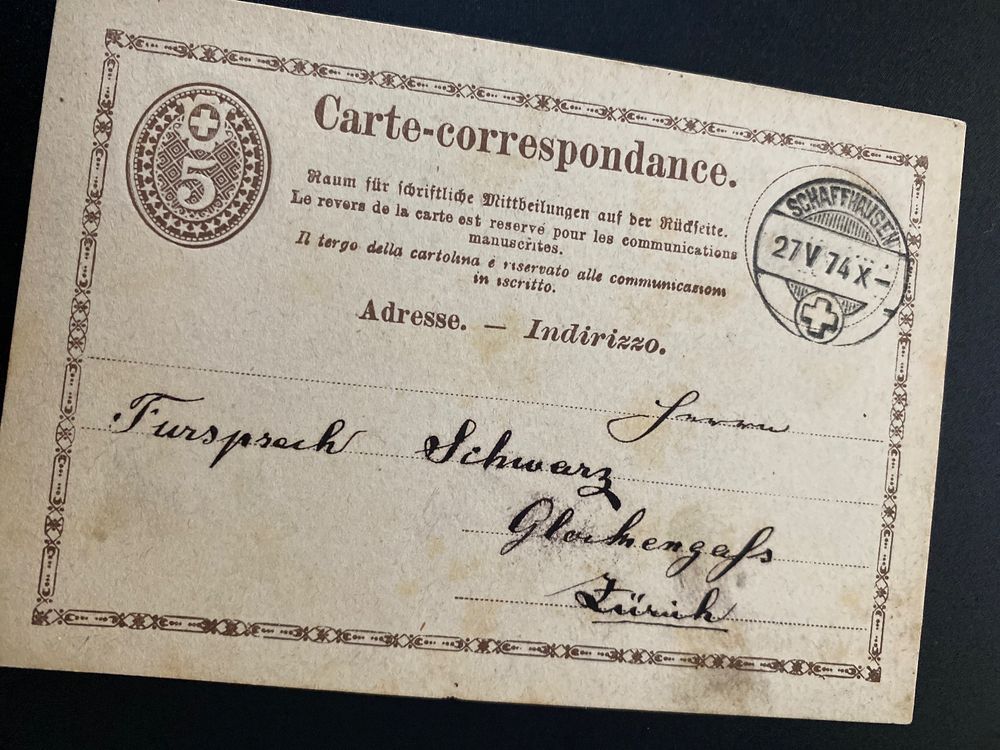 5
Carte-correspondance.
Raum für schriftliche Mittheilungen auf der Rückseite.
Le revers de la carte est reservé pour les communications
manuscrites.
Il tergo della cartolina è riservato alle communicazioni
in iscritto.
Adresse. — Indirizzo.
SCHAFFHAUSEN
27 V 74 X –
Herrn
Fursprech Schwarz
Glockengaſs
Zürich